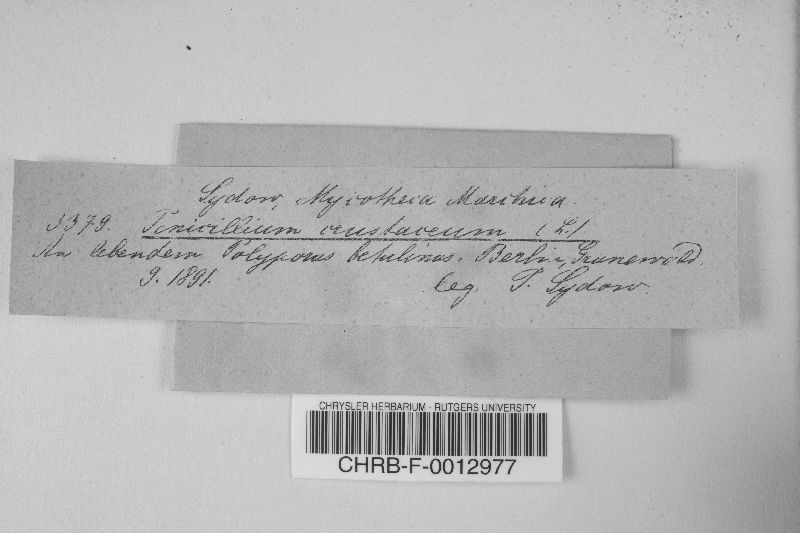 Sydow, Mycotheca Marchica.
3379. Penicillium crustaceum (L.)
An lebendem Polyporus betulinus. Berlin, Grunewald.
9. 1891.
leg. P. Sydow.
CHRYSLER HERBARIUM - RUTGERS UNIVERSITY
CHRB-F-0012977